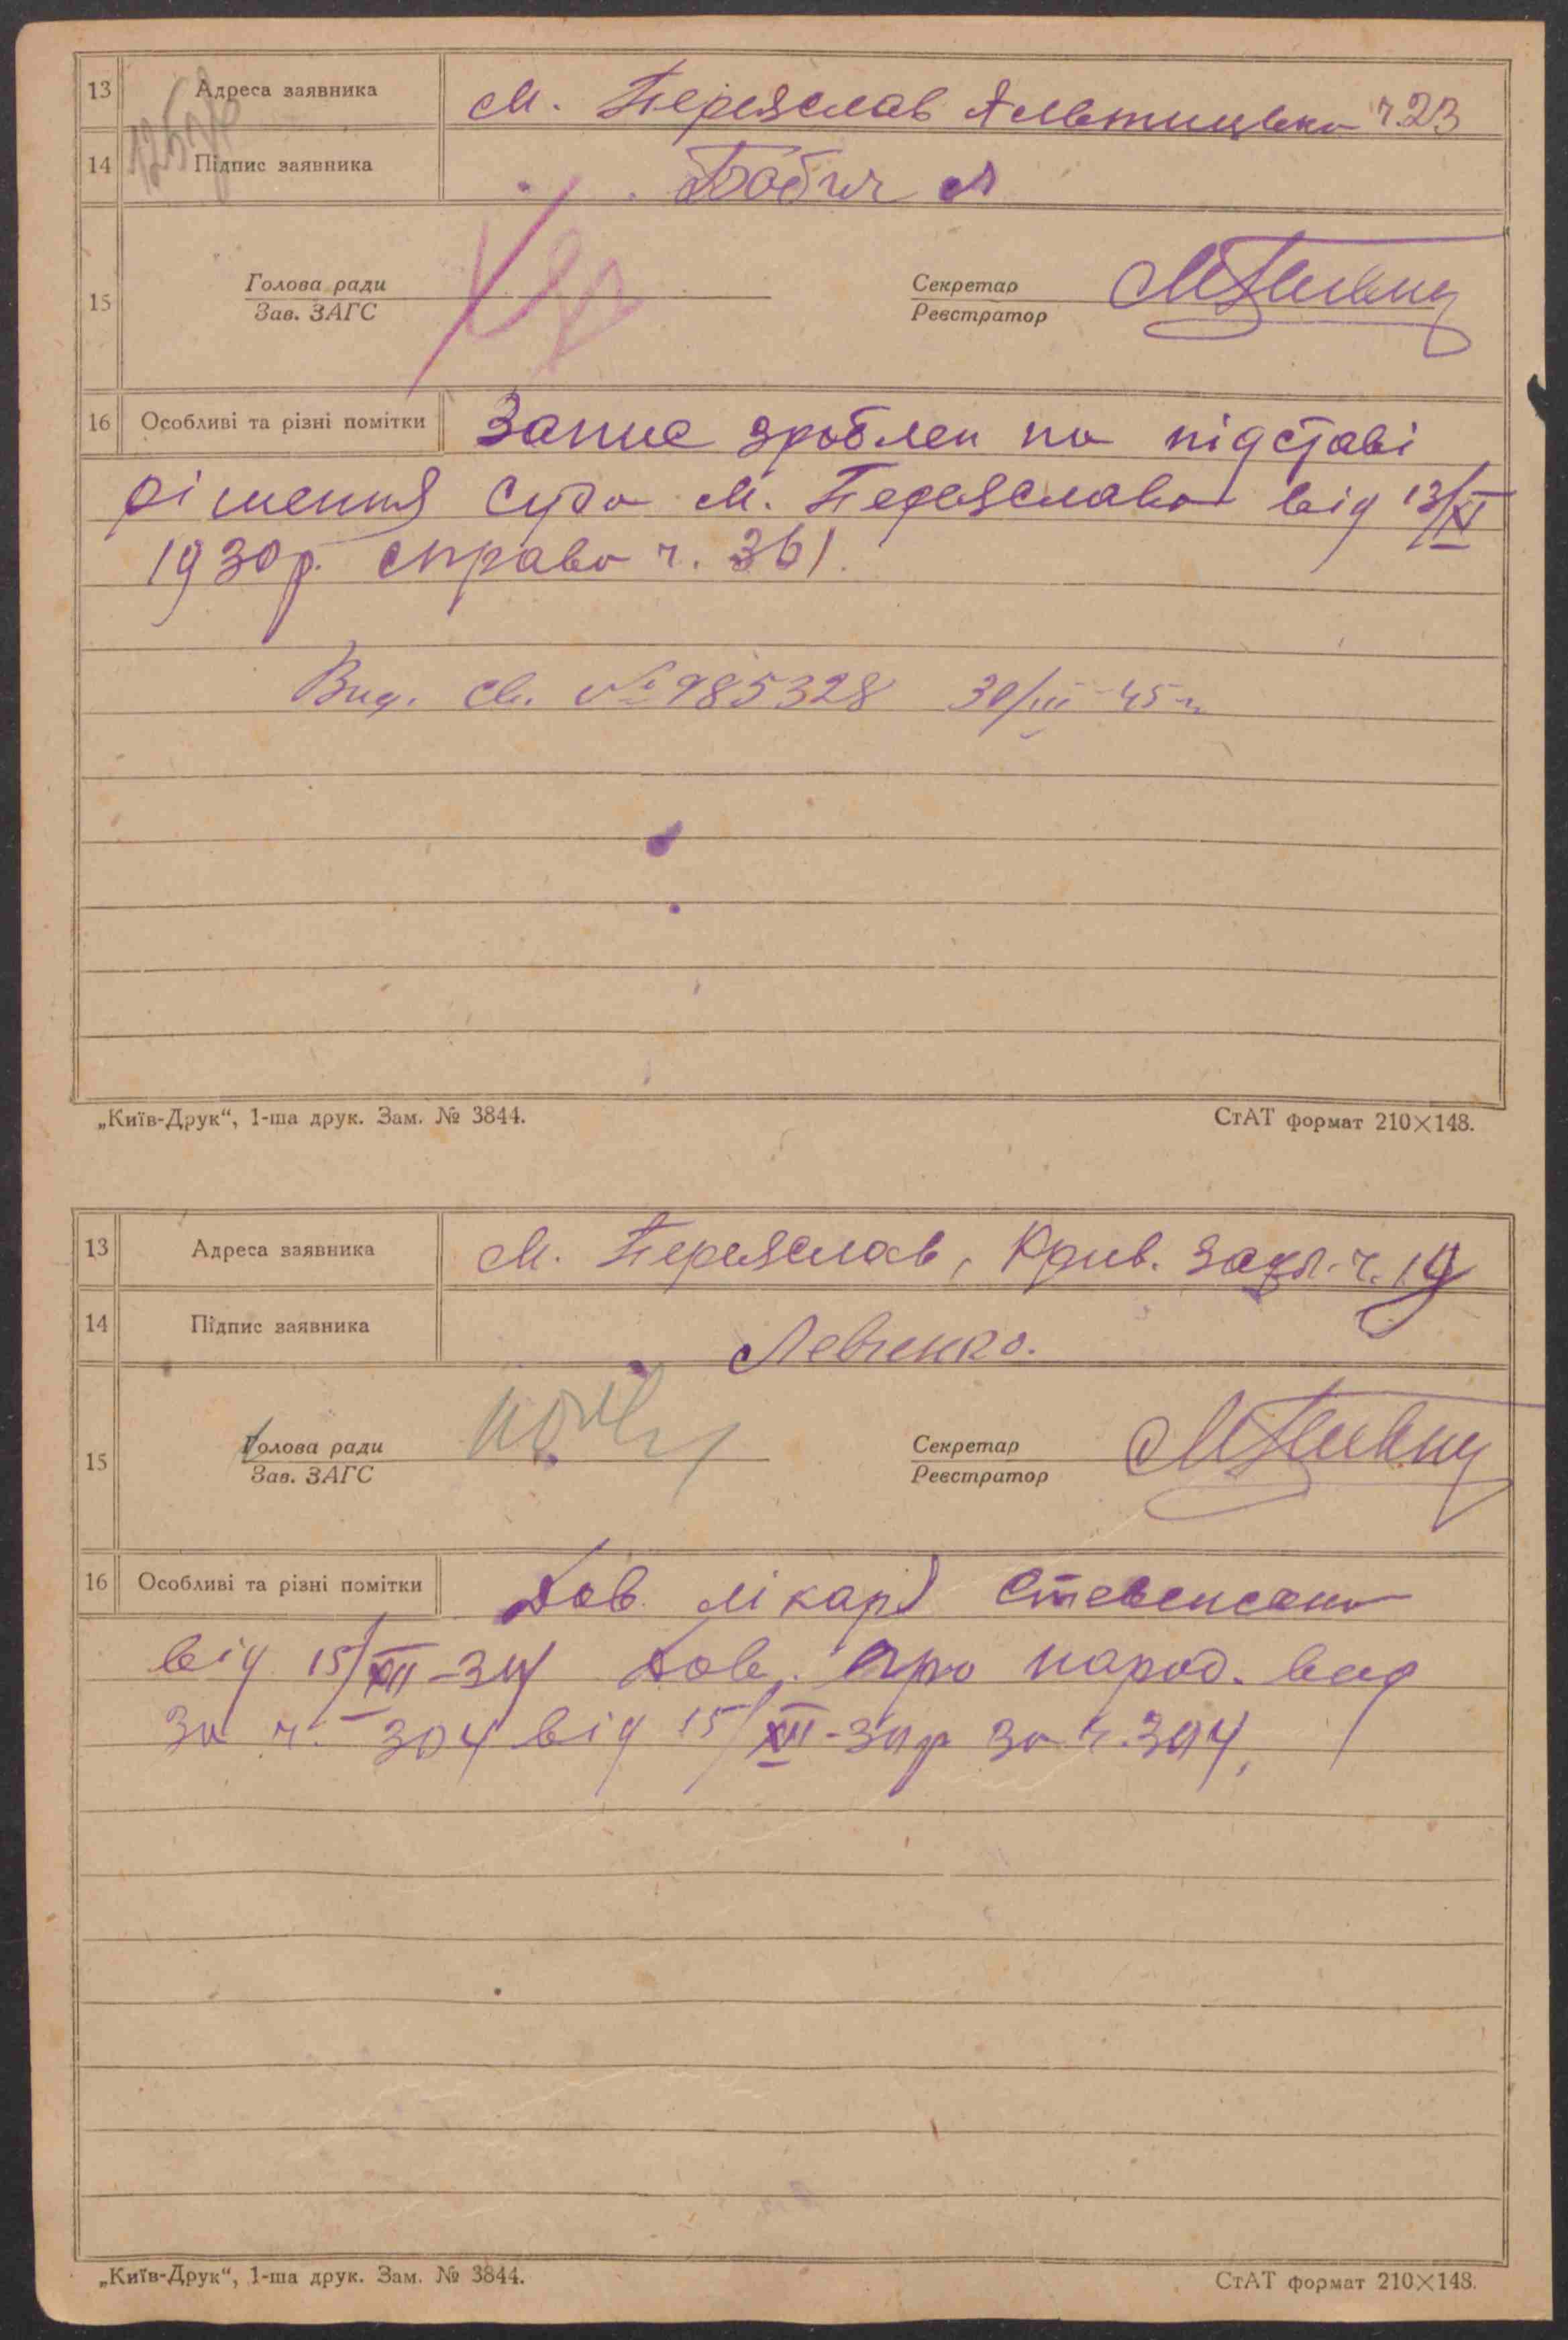 13 Адреса заявника м. Переяслав Альтицька ч.23
14 Підпис заявника Бабич
15 Голова ради
Зав. ЗАГС
Секретар
Реєстратор
16 Особливі та різні помітки Запис зроблен на підставі
рішення суда м. Переяслава від 13/XI
1930р. справа ч. 361.
Вид. св. № 985328 30/III-45 г.
„Київ-Друк“, 1-ша друк. Зам. № 3844. СтАТ формат 210×148.
13 Адреса заявника м. Переяслав, Крив. ч. 19
14 Підпис заявника Левченко.
15 Голова ради
Зав. ЗАГС
Секретар
Реєстратор
16 Особливі та різні помітки Дов. лікаря
від 15/XII-34 Дов. про народ. від
за ч. 304 від 15/XII-34р за ч.
„Київ-Друк“, 1-ша друк. Зам. № 3844. СтАТ формат 210×148.